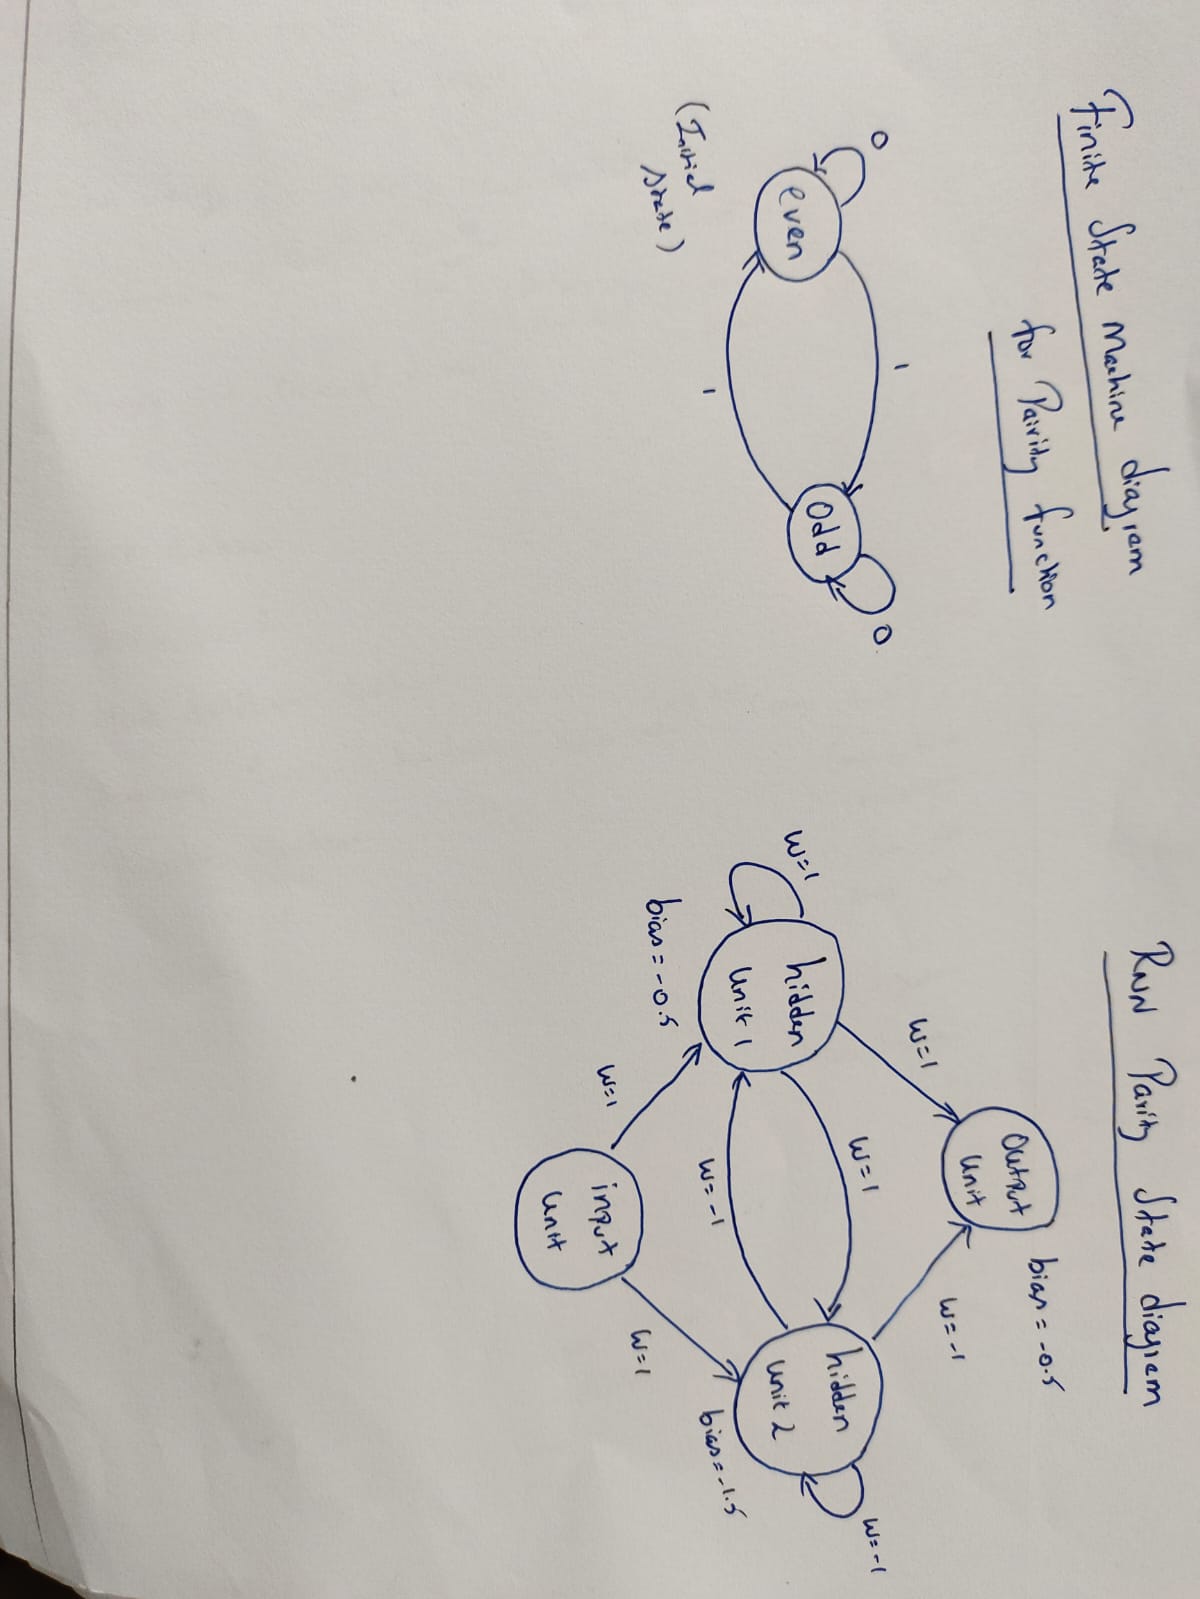 Finite State Machine diagram
for Pairity function
0
even
(Initial
State)
1
1
Odd
0
RNN Parity State diagram
Output
unit
bias = -0.5
W=1
W=-1
W=1
hidden
unit 1
bias = -0.5
W=1
W=-1
hidden
unit 2
W=-1
bias = -1.5
W=1
W=1
input
unit